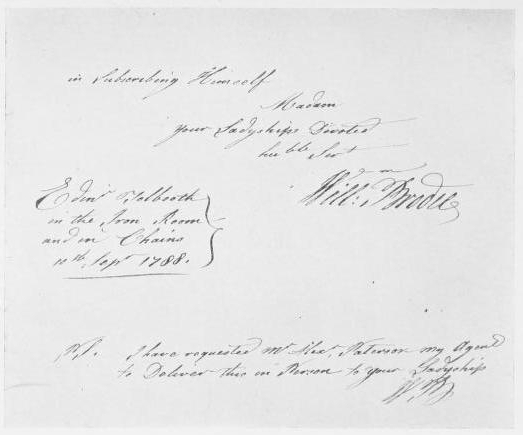 in Subscribing Himself
Madam
your Ladyships Devoted
hu ble Sert
Will: Brodie
Edinr Tolbooth
in the Iron Room
and in Chains
11th Sepr 1788.
P.S. I have requested Mr Alexr Paterson my Agent
to Deliver this in Person to your Ladyship
W B